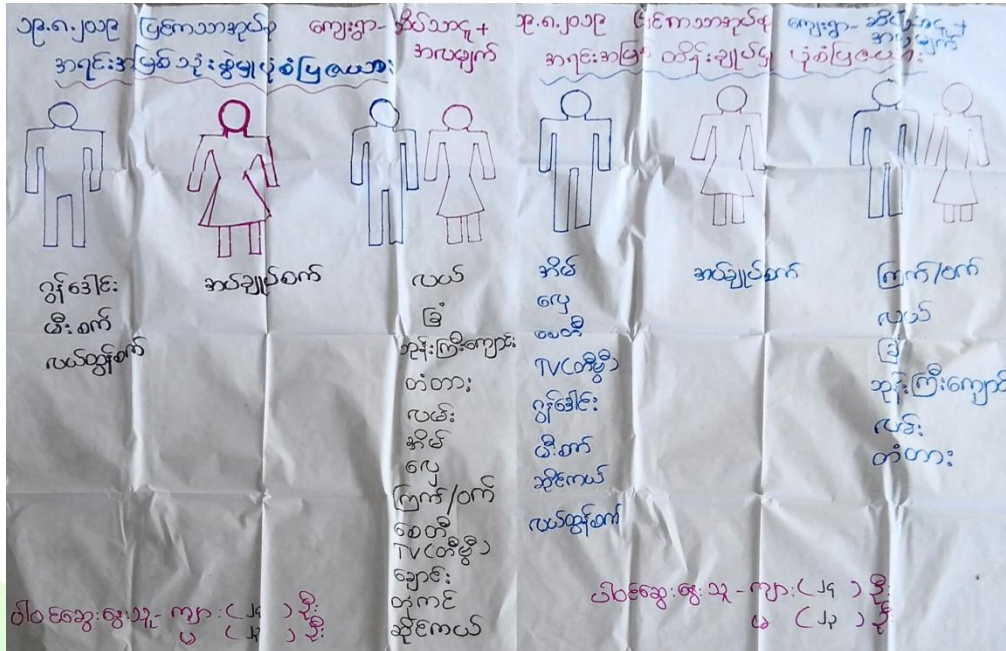 ၁၉.၈.၂၀၁၉ မြင်ကာသာအုပ်စု ကျေးရွာ- အိပ်သာငူ+
အလမျက်
အရင်းအမြစ်သုံးစွဲမှုပုံစံပြဇယား
ဂွန်ဒေါင်း
မီးစက်
လယ်ထွန်စက်
အပ်ချုပ်စက်
လယ်
ခြံ
ဘုန်းကြီးကျောင်း
တံတား
လမ်း
အိမ်
လှေ
ကြက်/ဝက်
စေတီ
TV(တီဗွီ)
ချောင်း
တုံကင်
ဆိုင်ကယ်
ပါဝင်ဆွေးနွေးသူ - ကျား (၂၄) ဦး
မ (၂၃) ဦး
၁၉.၈.၂၀၁၉ မြင်ကာသာအုပ်စု ကျေးရွာ-
အလမျက်
အရင်းအမြစ် ထိန်းချုပ်မှု ပုံစံပြဇယား
အိမ်
လှေ
စေတီ
TV(တီဗွီ)
ဂွန်ဒေါင်း
မီးစက်
ဆိုင်ကယ်
လယ်ထွန်စက်
အပ်ချုပ်စက်
ကြက်/ဝက်
လယ်
ခြံ
ဘုန်းကြီးကျောင်း
လမ်း
တံတား
ပါဝင်ဆွေးနွေးသူ - ကျား (၂၄) ဦး
မ (၂၃) ဦး